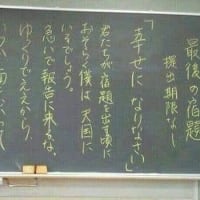 最後の宿題
提出期限なし
「幸せになりなさい」
君たちが宿題を出す頃に
おそらく僕は天国に
いるでしょう。
急いで報告に来るな。
ゆっくりでええから、